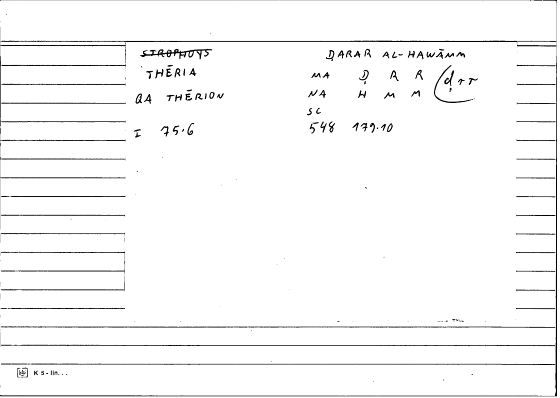 STROPHOYS
THĒRIA
QA THĒRION
I 75.6
ḌARAR AL-HAWĀMM
MA Ḍ R R (ḍrr
NA H M M
SC
548 179.10
K 5 - lin. . .